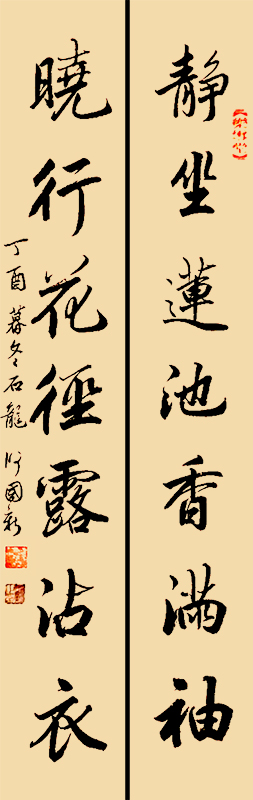 静坐蓮池香满袖
曉行花徑露沾衣
丁酉暮冬石龍
國新